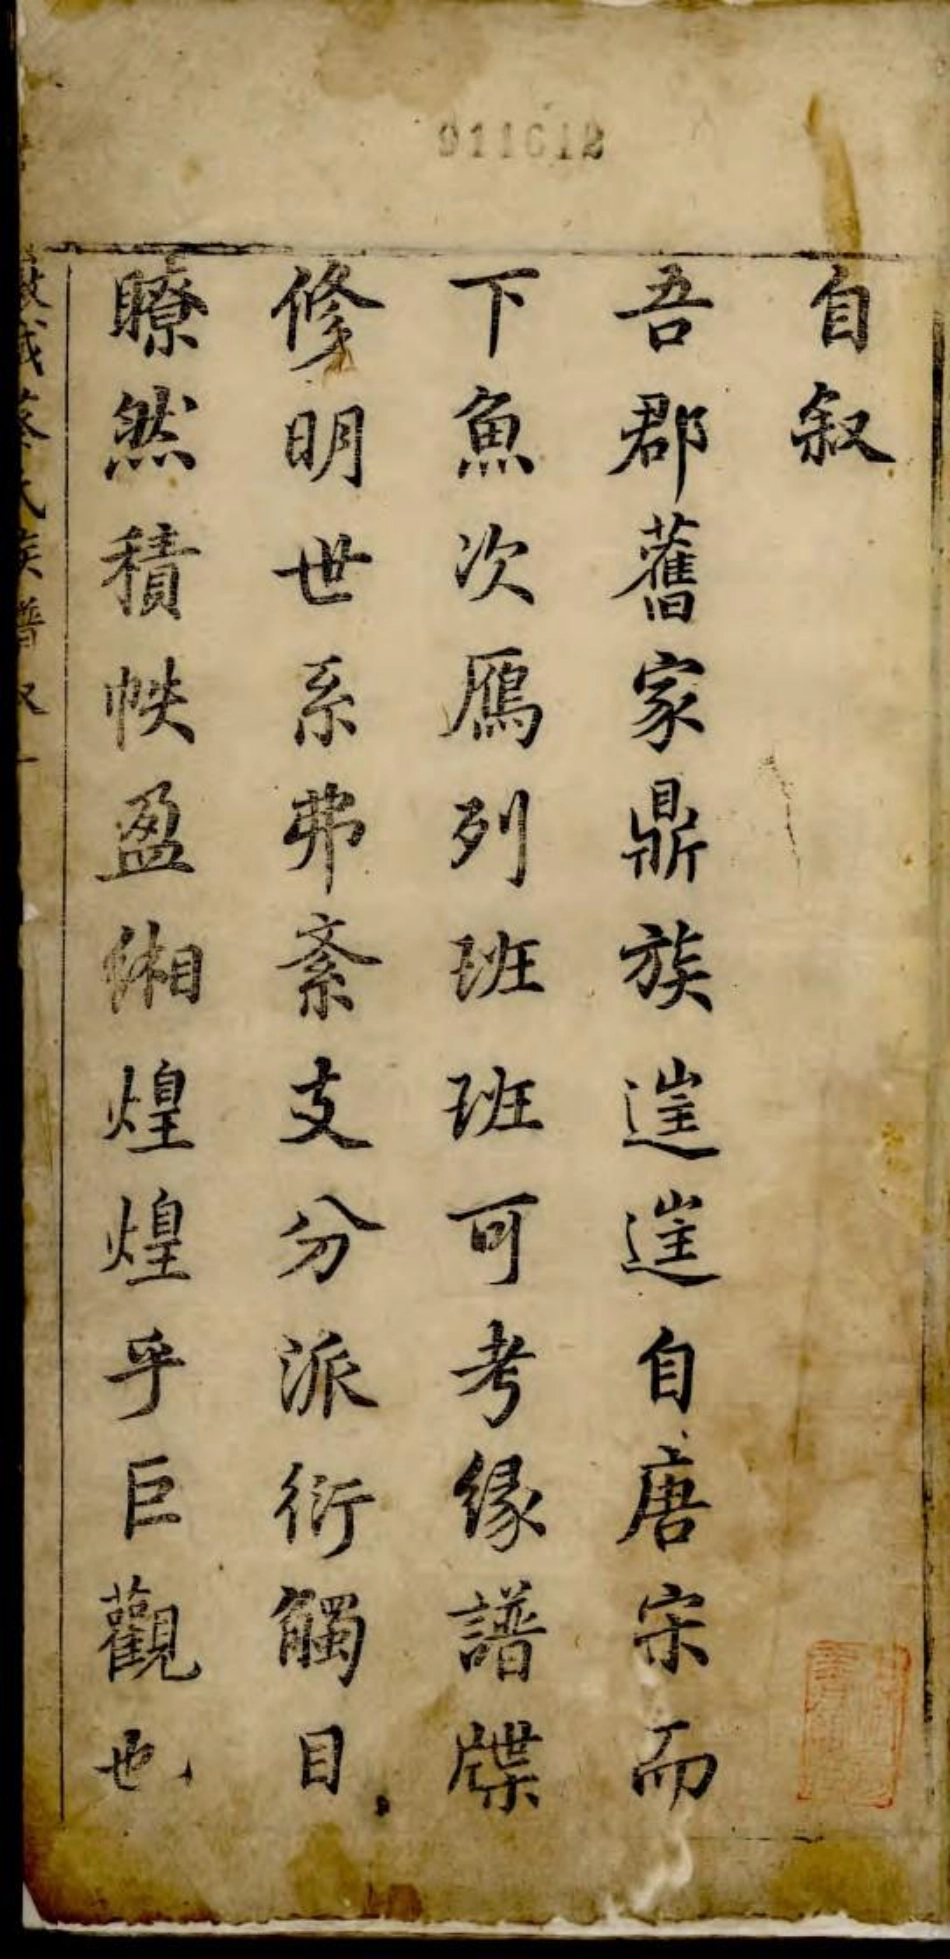 911612
自叙
吾郡舊家鼎族遳遳自唐宋而
下魚次鴈列班班可考緣譜牒
修明世系弗紊支分派衍觸目
瞭然積帙盈緗煌煌乎巨觀也
蔡氏族譜叙一